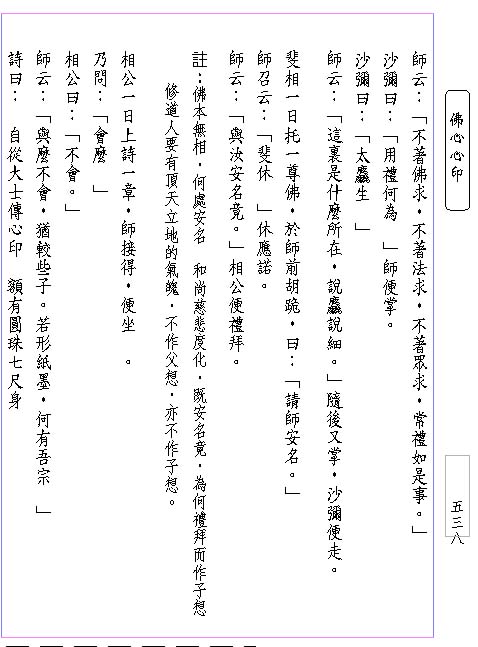 佛心心印
五三八
師云：「不著佛求，不著法求，不著眾求，常禮如是事。」
沙彌曰：「用禮何為　」師便掌。
沙彌曰：「太麤生　」
師云：「這裏是什麼所在，說麤說細。」隨後又掌，沙彌便走。
斐相一日托一尊佛，於師前胡跪，曰：「請師安名。」
師召云：「斐休　」休應諾。
師云：「與汝安名竟。」相公便禮拜。
註：佛本無相，何處安名　和尚慈悲度化，既安名竟，為何禮拜而作子想
修道人要有頂天立地的氣魄，不作父想，亦不作子想。
相公一日上詩一章，師接得，便坐　。
乃問：「會麼　」
相公曰：「不會。」
師云：「與麼不會，猶較些子。若形紙墨，何有吾宗　」
詩曰：　自從大士傳心印　額有圓珠七尺身